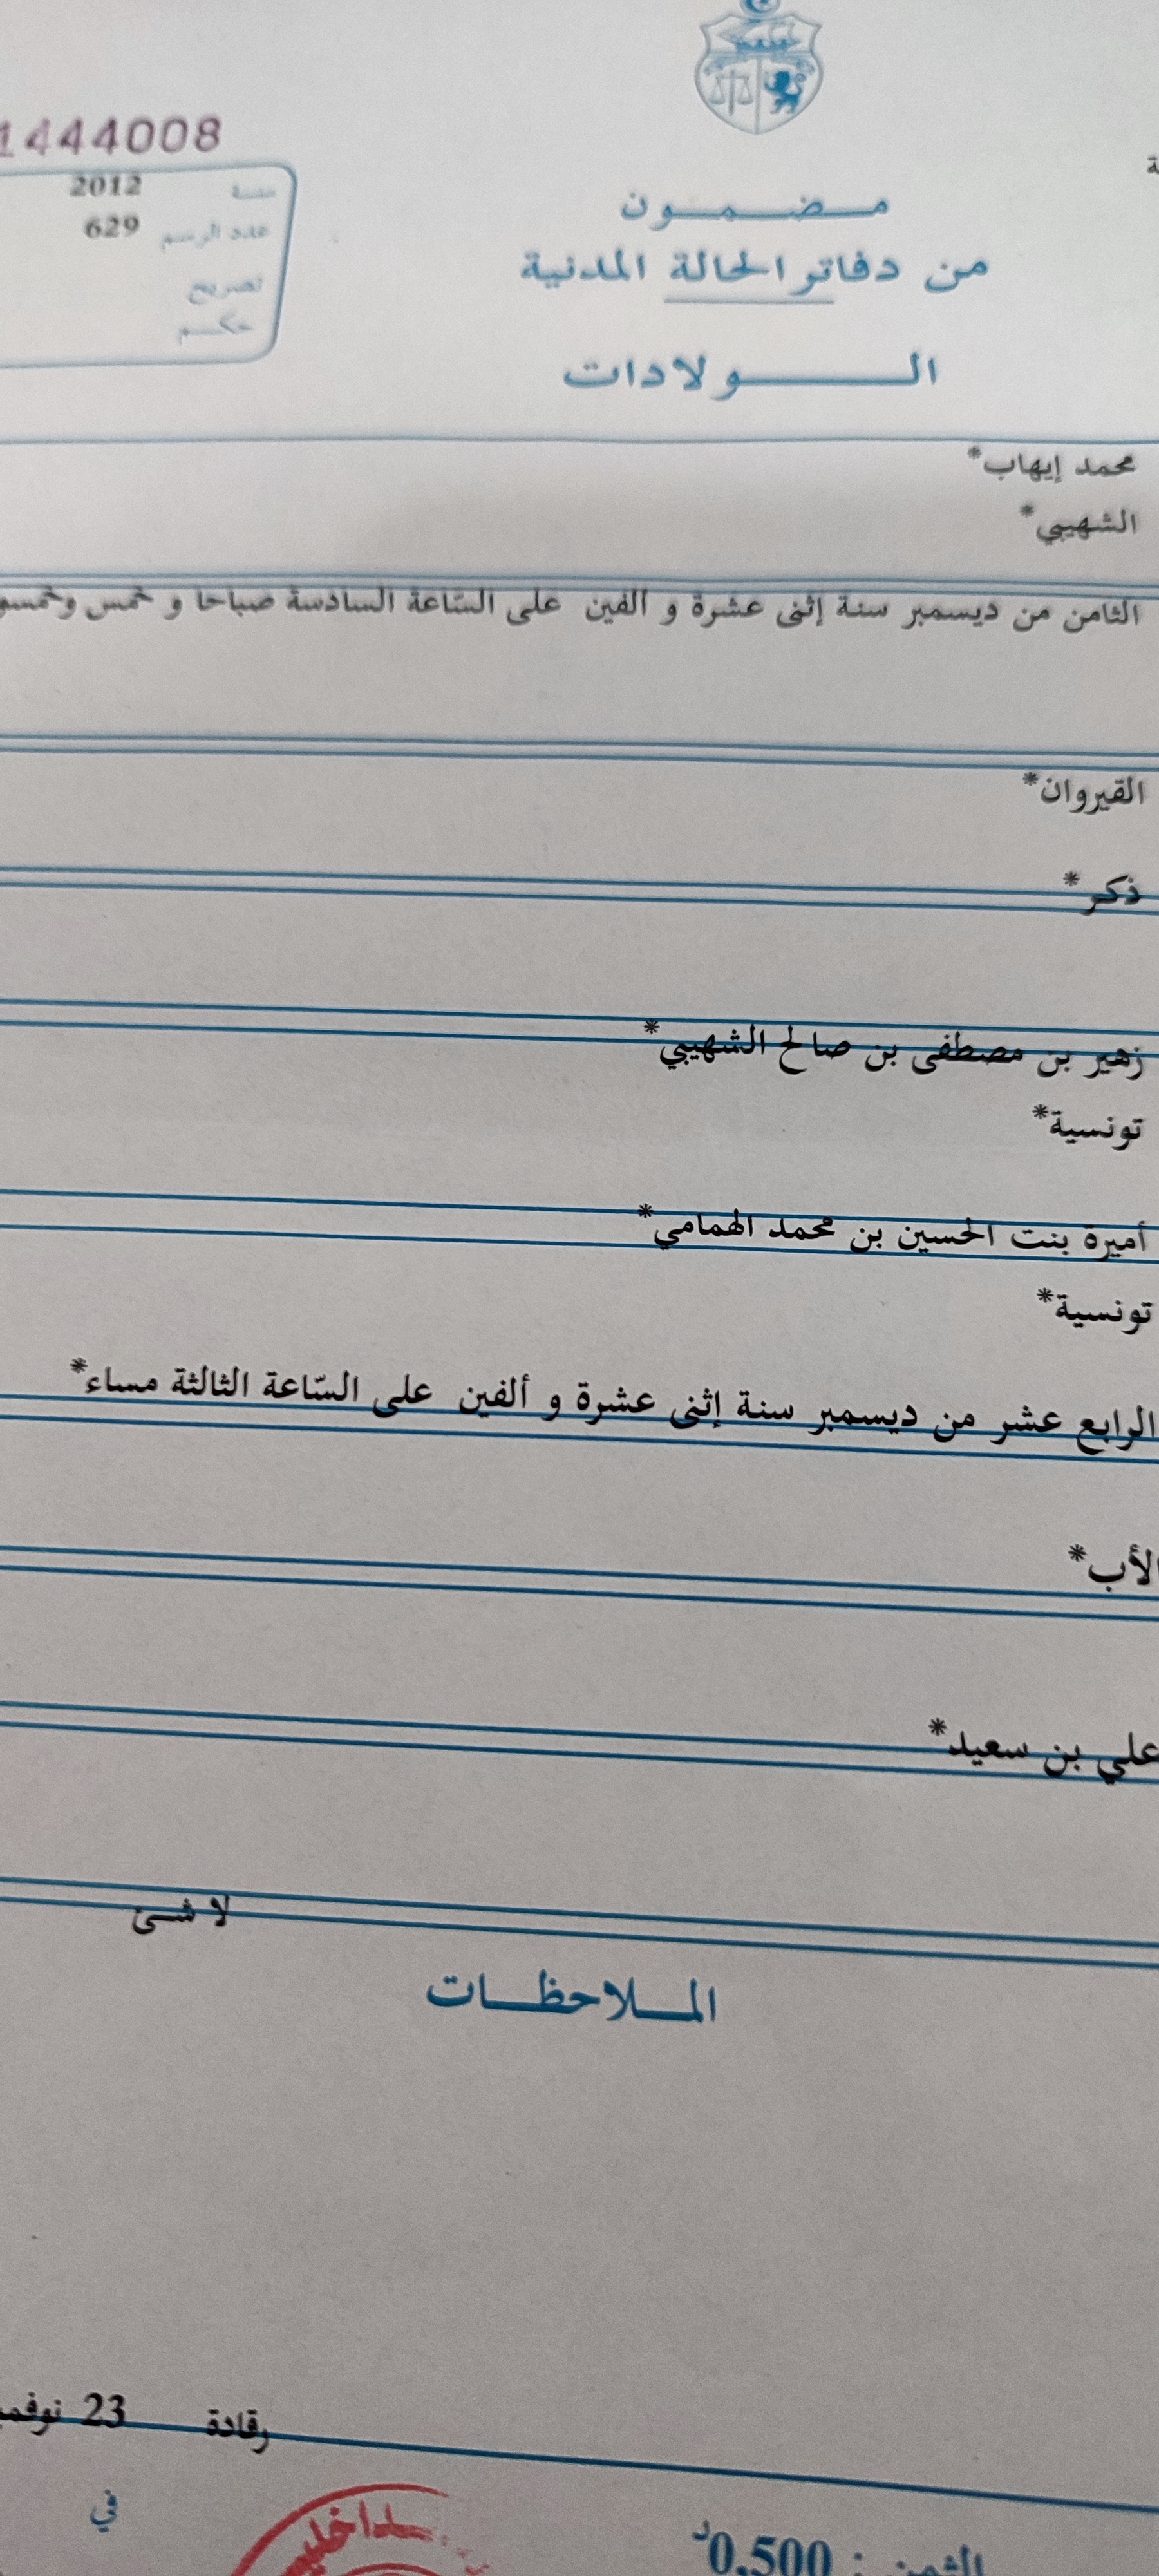 1444008
سنة 2012
عدد الرسم 629
تصريح
حكم
مضمون
من دفاتر الحالة المدنية
الولادات
محمد إيهاب*
الشهيبي*
الثامن من ديسمبر سنة إثنى عشرة و ألفين على السّاعة السادسة صباحا و خمس
القيروان*
ذكر*
زهير بن مصطفى بن صالح الشهيبي*
تونسية*
أميرة بنت الحسين بن محمد الهمامي*
تونسية*
الرابع عشر من ديسمبر سنة إثنى عشرة و ألفين على السّاعة الثالثة مساء*
الأب*
علي بن سعيد*
لا شئ
الملاحظات
رقادة 23
في
الثمن : 0,500د